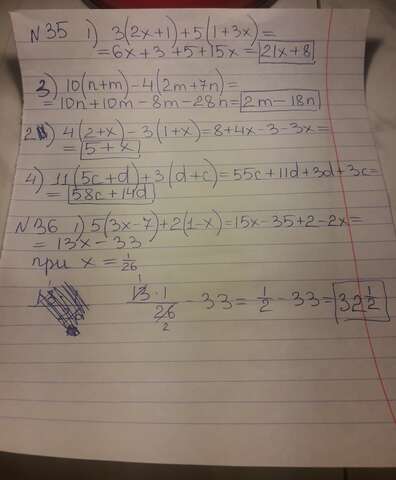 N35 1) 3(2x+1)+5(1+3x)=
=6x+3+5+15x=21x+8
3) 10(n+m)-4(2m+7n)=
=10n+10m-8m-28n=2m-18n
2) 4(2+x)-3(1+x)=8+4x-3-3x=
=5+x
4) 11(5c+d)+3(d+c)=55c+11d+3d+3c=
=58c+14d
N36 1) 5(3x-7)+2(1-x)=15x-35+2-2x=
=13x-33
при x=1/26
13·1/26 1 2 -33=1/2-33=32 1/2